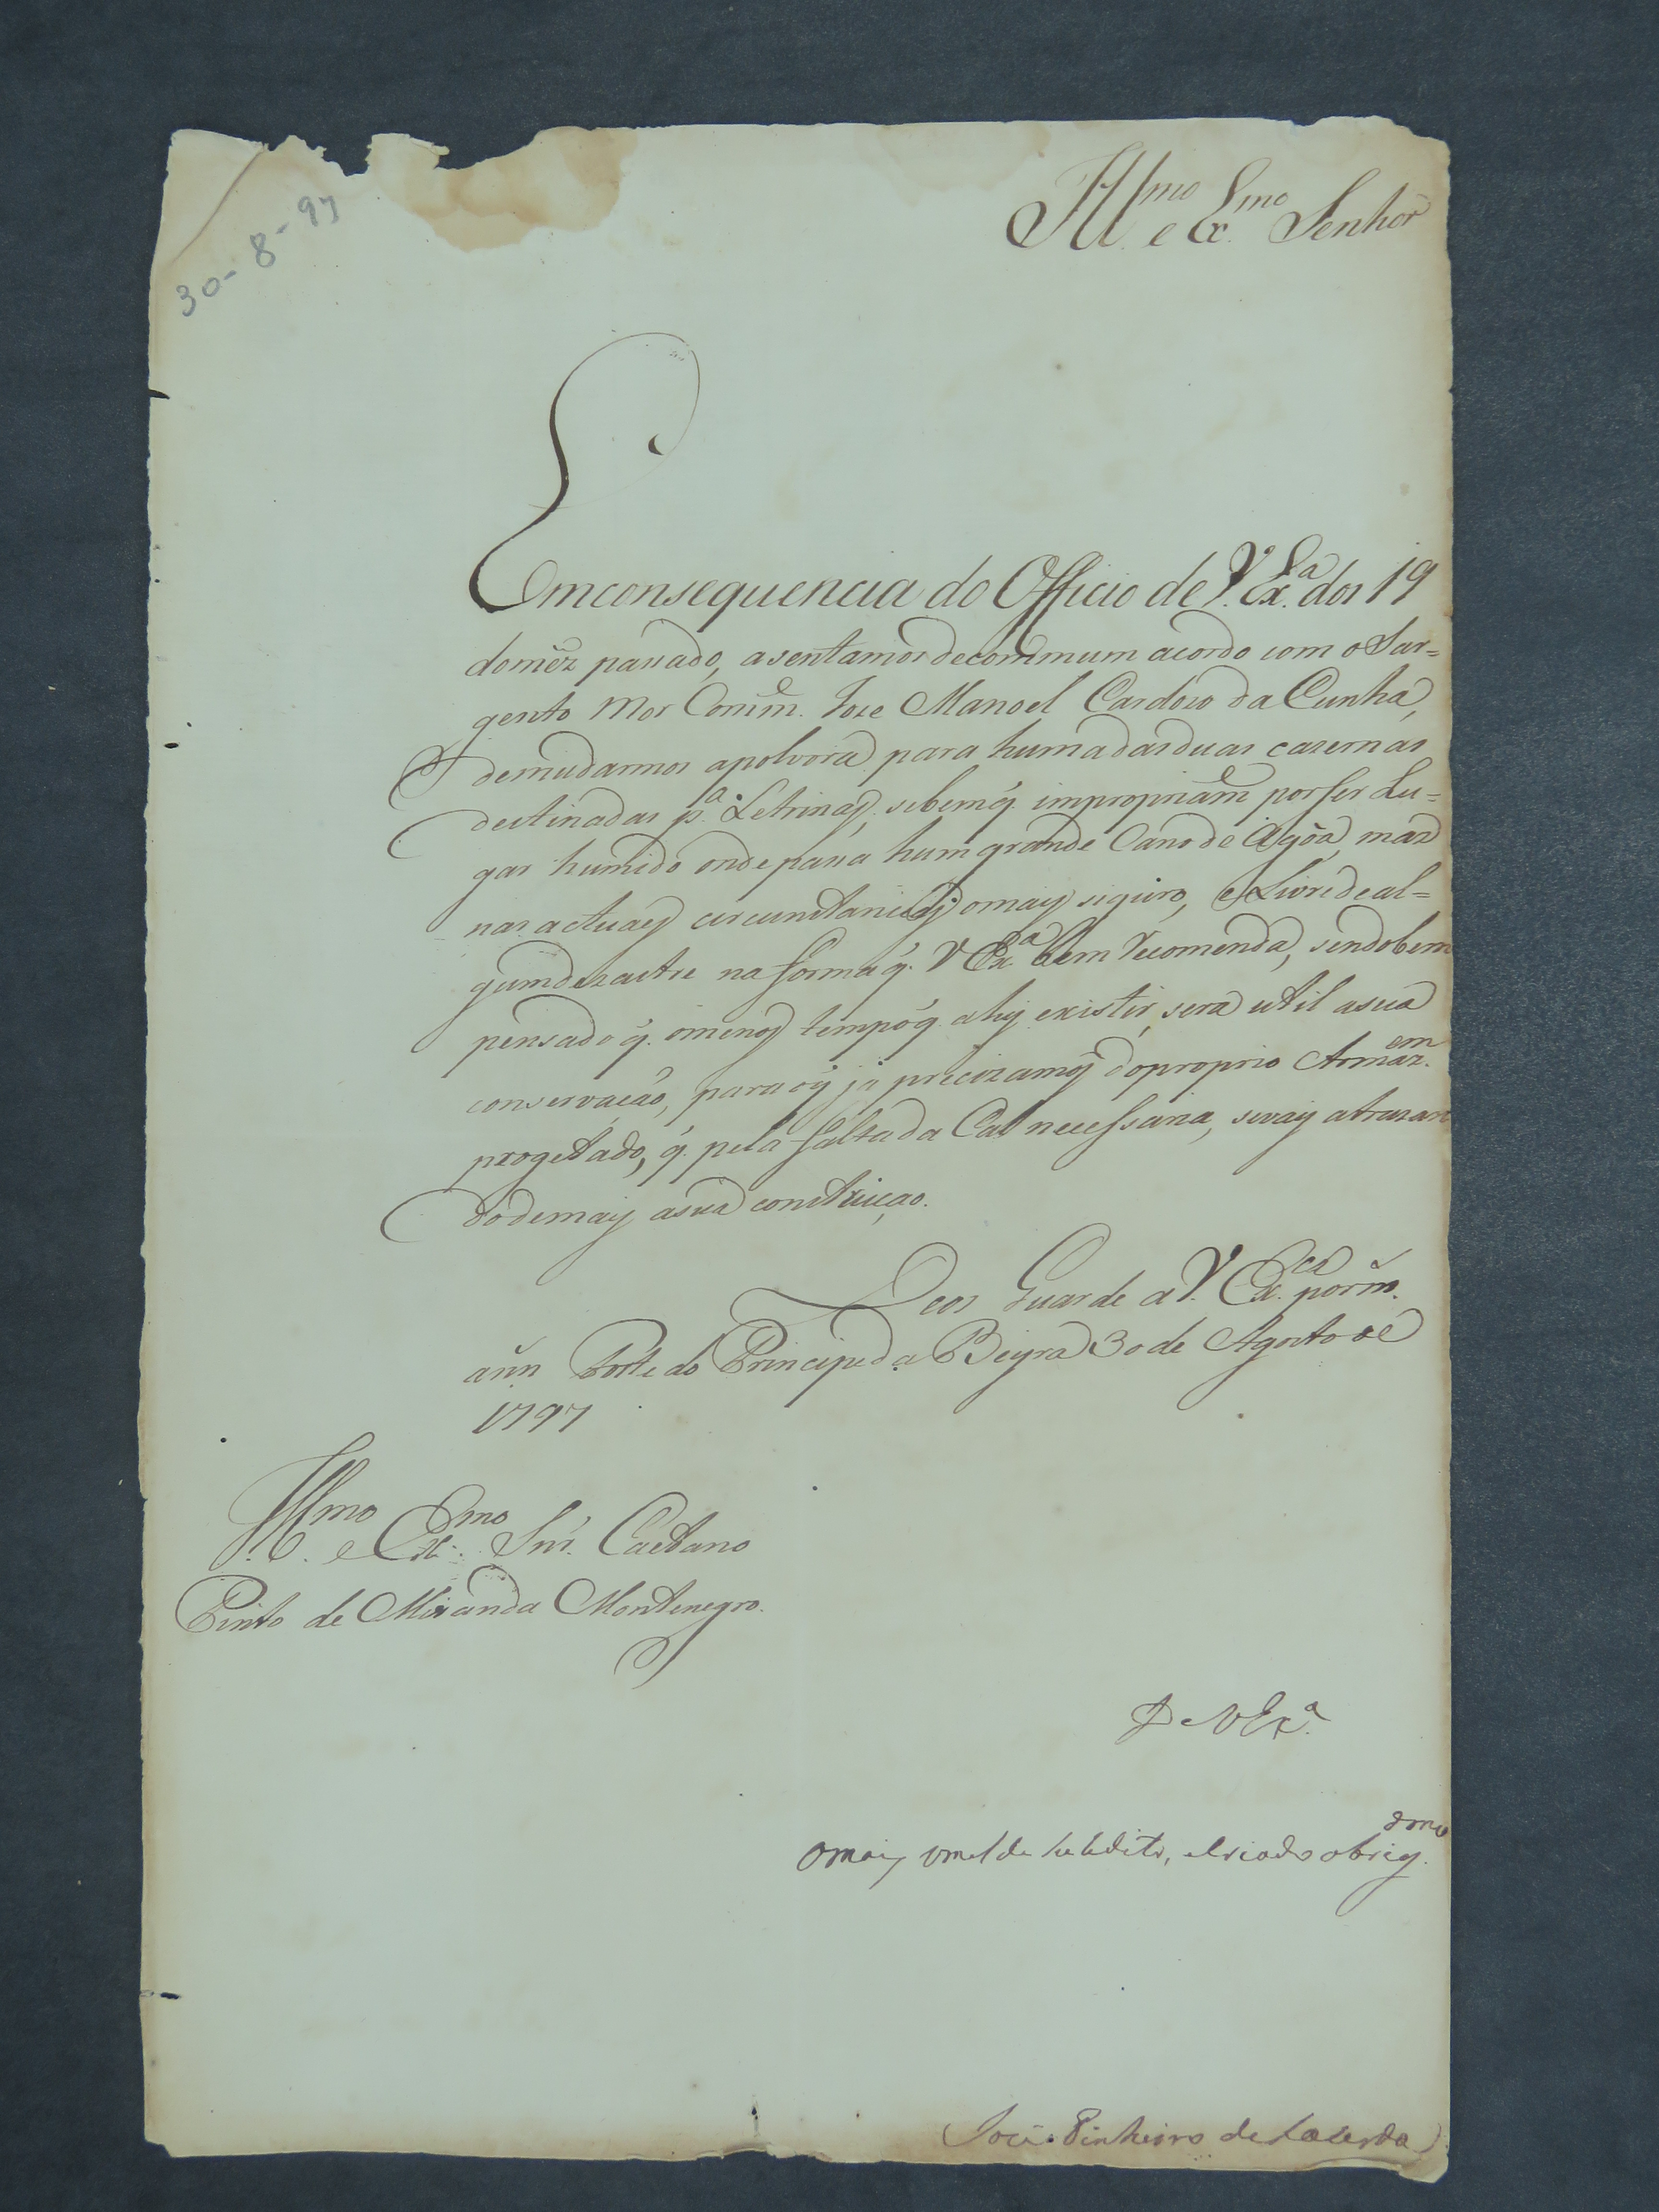 30-8-97
Ill.mo e Ex.mo Senhor
Emconsequencia do Officio de V. Ex.a dos 19
domêz passado, asentamos decommum acordo com o Sar=
gento Mor Comm.e Joze Manoel Cardozo da Cunha,
demudarmos apolvora para humadasduas cazernas
destinadas p.a Letrinas, sebemq. impropriam.e porser Lu=
gar humido ondepassa hum grande Cano de Agôa, mas
nas actuaes circunstancias omais siguro, e Livre de al=
gumdezastre na forma q. V Ex.a bem Recomenda, sendobem
pensado q. omenos tempo q. ahy existir, sera util asua
conservação, para oq já precizamos doproprio Armaz.em
progetado, q. pela falta da Cal necessaria, sevay atrazan
dodemais asua construiçao.
Deos Guarde a V. Ex.ca porm.
ann Forte do Principe da Beyra 30 de Agosto de
1797
Ill.mo e Ex.mo Snr. Caetano
Pinto de Miranda Montenegro.
De V Ex.a
Omais umelde Subdito, eCriado obrig.dmo
(José Pinheiro de Lacerda)